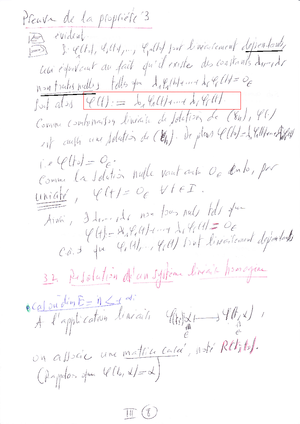 Preuve de la propriété 3
évident
Si φ1(t0), φ2(t0), ..., φr(t0) sont linéairement dépendants
cela équivaut au fait qu'il existe des constantes λ1 ... λr
non toutes nulles telles que λ1φ1(t0)+...+λrφr(t0) = 0E
Soit alors φ(t) := λ1φ1(t)+...+λrφr(t)
Comme combinaison linéaire de solutions de
est aussi une solution de De plus φ(t0) = λ1φ1(t0)+...
i.e φ(t0) = 0E.
Comme la solution nulle vaut aussi 0E en t0, par
unicité, φ(t) = 0E ∀ t ∈ I.
Ainsi, ∃ λ1...λr non tous nuls tels que
φ(t) = λ1φ1(t)+...+λrφr(t) = 0E
c.à.d que φ1(t), ..., φr(t) sont linéairement dépendants
3.2 Résolution d'un système linéaire homogène
cas où dim E = n < +∞
A l'application linéaire
on associe une matrice carrée, notée R(t,t0).
(Rappelons que φ(t0, α) = α)
III 8